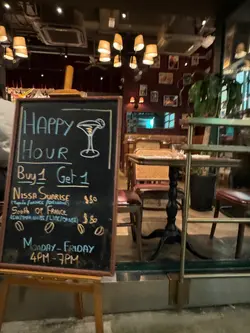 HAPPY
HOUR
Buy 1 Get 1
NISSA SUNRISE
$80
SOUTH OF FRANCE
$80
MONDAY-FRIDAY
4PM-7PM